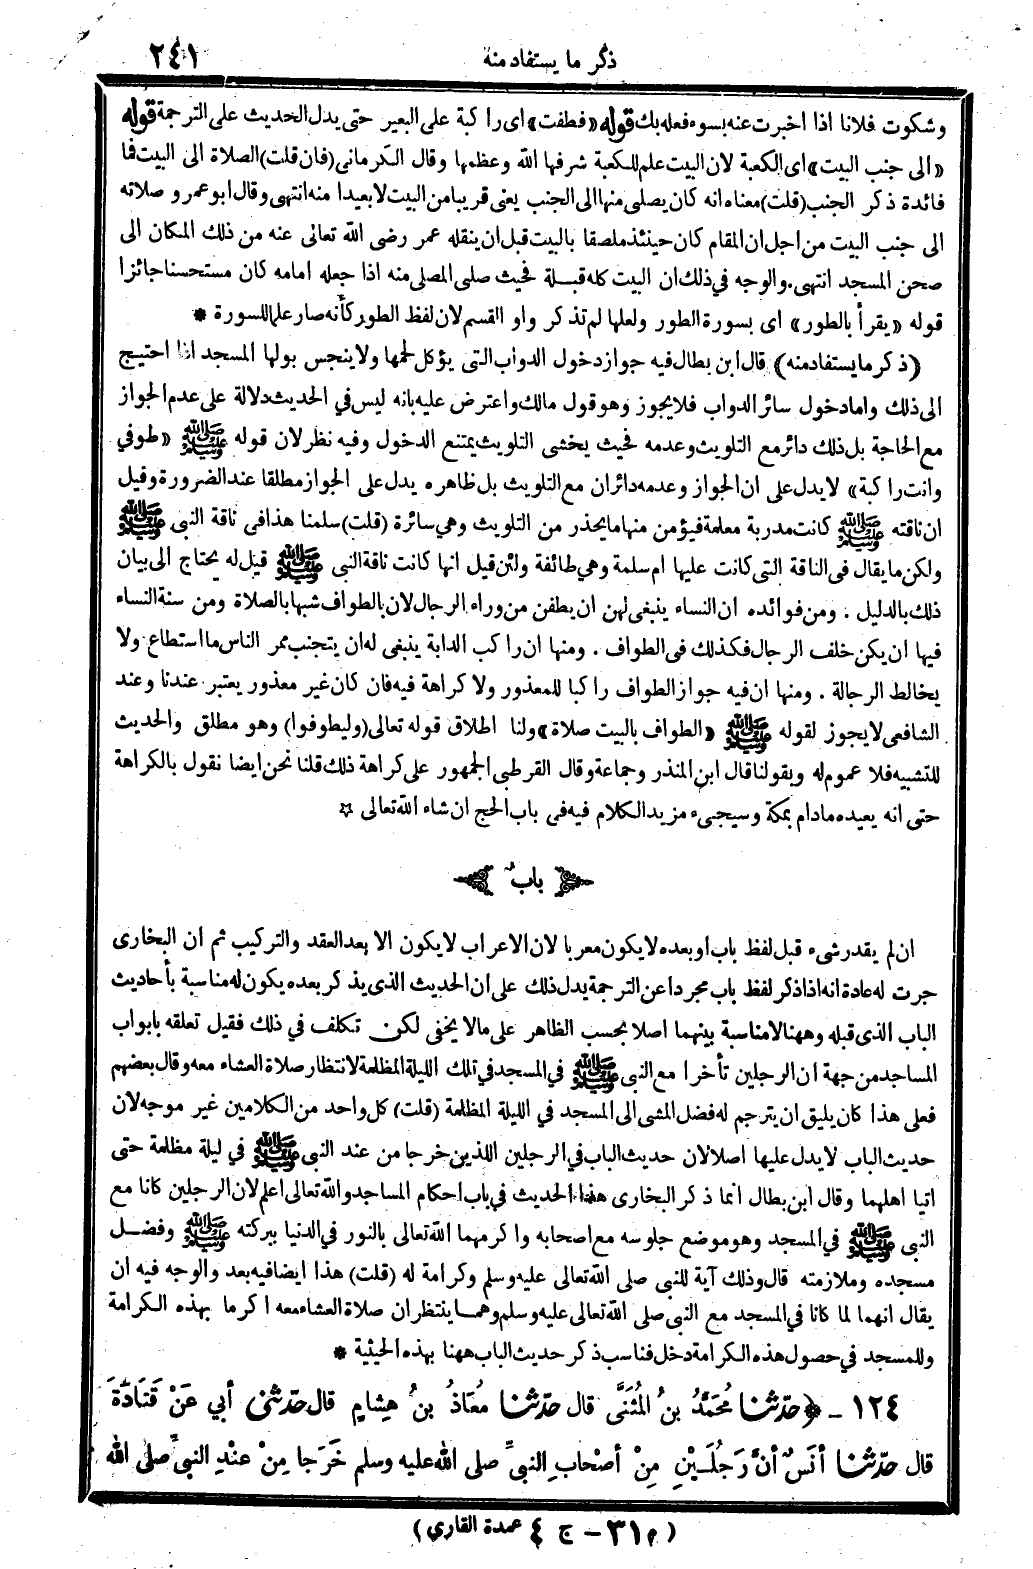 ذكر ما يستفاد منه
٢٤١
وشكوت فلانا اذا اخبرت عنه بسوء فعله بك قوله «فطفت» اى راكبة على البعير حتى يدل الحديث على الترجمة قوله
«الى جنب البيت» اى الكعبة لان البيت علم للكعبة شرفها الله وعظمها وقال الكرمانى (فان قلت) الصلاة الى البيت فما
فائدة ذكر الجنب (قلت) معناه انه كان يصلى منها الى الجنب يعنى قريبا من البيت لا بعيدا منه انتهى وقال ابو عمر و صلاته
الى جنب البيت من اجل ان المقام كان حينئذ ملصقا بالبيت قبل ان ينقله عمر رضى الله تعالى عنه من ذلك المكان الى
صحن المسجد انتهى. والوجه في ذلك ان البيت كله قبلة فحيث صلى المصلى منه اذا جعله امامه كان مستحسنا جائزا
قوله «يقرأ بالطور» اى بسورة الطور ولعلها لم تذكر واو القسم لان لفظ الطور كأنه صار علما للسورة *
(ذكر ما يستفاد منه) قال ابن بطال فيه جواز دخول الدواب التى يؤكل لحمها ولا ينجس بولها المسجد اذا احتيج
الى ذلك واما دخول سائر الدواب فلا يجوز وهو قول مالك واعترض عليه بانه ليس في الحديث دلالة على عدم الجواز
مع الحاجة بل ذلك دائر مع التلويث وعدمه فحيث يخشى التلويث يمتنع الدخول وفيه نظر لان قوله ﷺ «طوفي
وانت راكبة» لا يدل على ان الجواز وعدمه دائران مع التلويث بل ظاهره يدل على الجواز مطلقا عند الضرورة وقيل
ان ناقته ﷺ كانت مدربة معلمة فيؤمن منها ما يحذر من التلويث وهى سائرة (قلت) سلمنا هذا فى ناقة النبى ﷺ
ولكن ما يقال فى الناقة التى كانت عليها ام سلمة وهى طائفة ولئن قيل انها كانت ناقة النبى ﷺ قيل له يحتاج الى بيان
ذلك بالدليل . ومن فوائده ان النساء ينبغى لهن ان يطفن من وراء الرجال لان بالطواف شبها بالصلاة ومن سنة النساء
فيها ان يكن خلف الرجال فكذلك فى الطواف . ومنها ان راكب الدابة ينبغى له ان يتجنب ممر الناس ما استطاع ولا
يخالط الرجالة . ومنها ان فيه جواز الطواف راكبا للمعذور ولا كراهة فيه فان كان غير معذور يعتبر عندنا وعند
الشافعى لا يجوز لقوله ﷺ «الطواف بالبيت صلاة» ولنا اطلاق قوله تعالى (وليطوفوا) وهو مطلق والحديث
للتشبيه فلا عموم له وبقولنا قال ابن المنذر وجماعة وقال القرطبى الجمهور على كراهة ذلك قلنا نحن ايضا نقول بالكراهة
حتى انه يعيده مادام بمكة وسيجىء مزيد الكلام فيه فى باب الحج ان شاء الله تعالى ☆
باب
ان لم يقدر شىء قبل لفظ باب او بعده لا يكون معربا لان الاعراب لا يكون الا بعد العقد والتركيب ثم ان البخارى
جرت له عادة انه اذا ذكر لفظ باب مجردا عن الترجمة يدل ذلك على ان الحديث الذى يذكر بعده يكون له مناسبة بأحاديث
الباب الذى قبله وههنا لا مناسبة بينهما اصلا بحسب الظاهر على ما لا يخفى لكن تكلف في ذلك فقيل تعلقه بابواب
المساجد من جهة ان الرجلين تأخرا مع النبى ﷺ في المسجد في تلك الليلة المظلمة لانتظار صلاة العشاء معه وقال بعضهم
فعلى هذا كان يليق ان يترجم له فضل المشى الى المسجد في الليلة المظلمة (قلت) كل واحد من الكلامين غير موجه لان
حديث الباب لا يدل عليها اصلا لان حديث الباب في الرجلين اللذين خرجا من عند النبى ﷺ في ليلة مظلمة حتى
اتيا اهلهما وقال ابن بطال انما ذكر البخارى هذا الحديث في باب احكام المساجد والله تعالى اعلم لان الرجلين كانا مع
النبى ﷺ في المسجد وهو موضع جلوسه مع اصحابه واكرمهما الله تعالى بالنور في الدنيا ببركته ﷺ وفضل
مسجده وملازمته قال وذلك آية للنبى صلى الله تعالى عليه وسلم وكرامة له (قلت) هذا ايضا فيه بعد والوجه فيه ان
يقال انهما لما كانا في المسجد مع النبى صلى الله تعالى عليه وسلم وهما ينتظران صلاة العشاء معه اكرما بهذه الكرامة
وللمسجد في حصول هذه الكرامة دخل فناسب ذكر حديث الباب ههنا بهذه الحيثية *
١٢٤ - ﴿حدّثنا مُحَمَّدُ بنُ المُثَنَّى قال حدّثنا مُعَاذُ بنُ هِشامٍ قال حدّثنى أبي عَنْ قَتَادَةَ
قال حدّثنا أنَسٌ أنَّ رَجُلَيْنِ مِنْ أصْحابِ النبىِّ صلى الله عليه وسلم خَرَجا مِنْ عِنْدِ النبىِّ صلى الله
(م ٣١ - ج ٤ عمدة القاري)